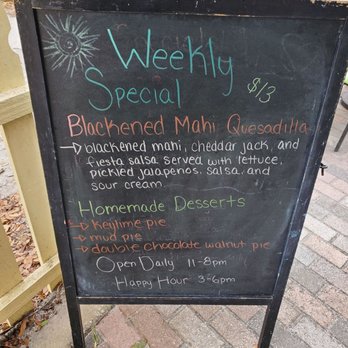 Weekly
Special
$13
Blackened Mahi Quesadilla
→ blackened mahi, cheddar jack, and
fiesta salsa. served with lettuce,
pickled jalapenos, salsa, and
sour cream.
Homemade Desserts
→ keylime pie
→ mud pie
→ double chocolate walnut pie
Open Daily 11-8pm
Happy Hour 3-6pm